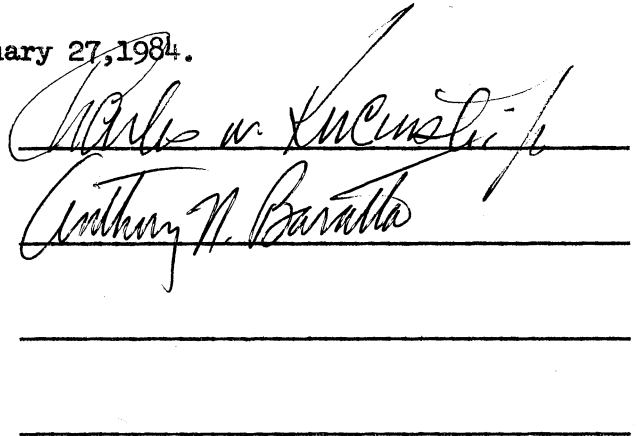 uary 27,1984.
Charles W. Kucinski Jr
Anthony N. Baratta